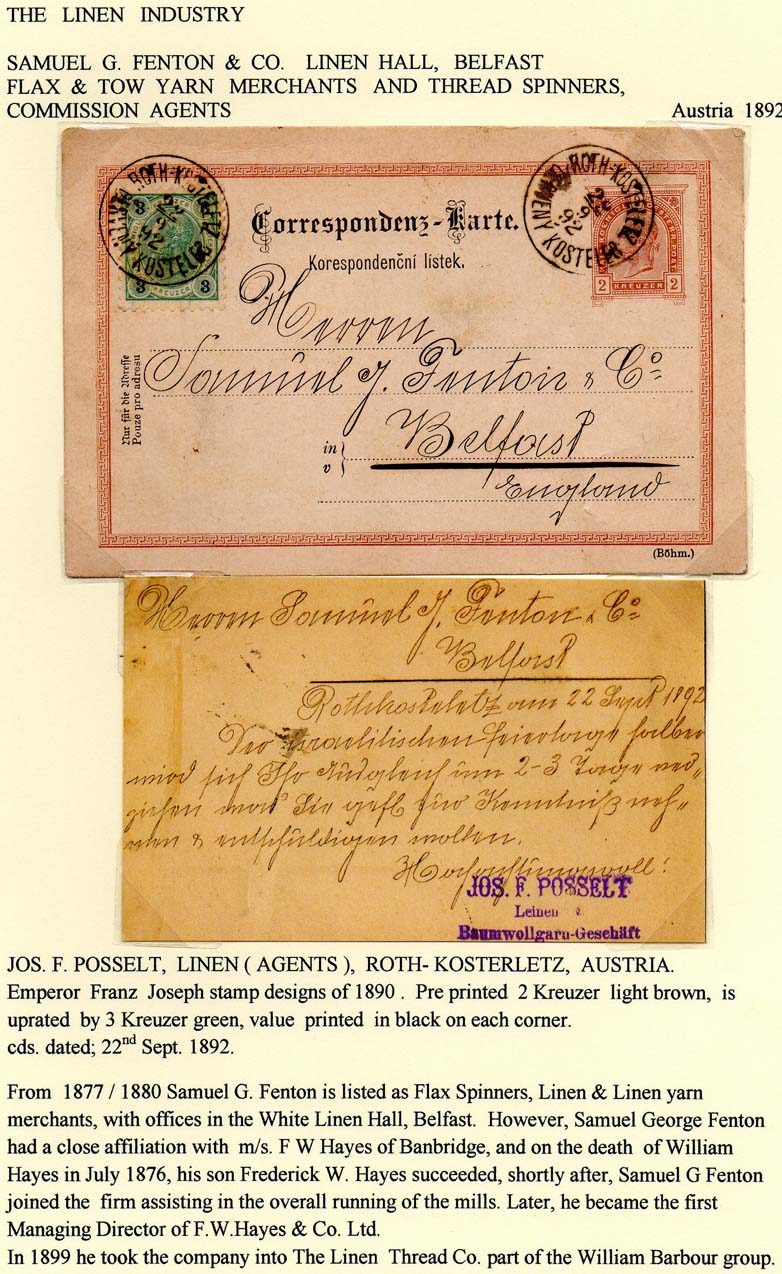 THE LINEN INDUSTRY
SAMUEL G. FENTON & CO. LINEN HALL, BELFAST
FLAX & TOW YARN MERCHANTS AND THREAD SPINNERS,
COMMISSION AGENTS Austria 1892
ROTH-KOSTELETZ
ČERVENÝ KOSTELEC
22
9
92
3 3
KREUZER
3 3
Correspondenz-Karte.
Korespondenční lístek.
ROTH-KOSTELETZ
ČERVENÝ KOSTELEC
92
2 KREUZER 2
Nur für die Adresse
Pouze pro adresu
Herren
Samuel J. Fenton & Co
in
v
Belfast
England
(Böhm.)
Herren Samuel J. Fenton & Co
Belfast
Rothkosteletz am 22 Sept 1892
Der israelitischen Feiertage halber
wird sich Ihr Ausgleich um 2-3 Tage ver-
ziehen was Sie gefl zur Kenntniß neh-
men & entschuldigen wollen.
Hochachtungsvoll!
JOS. F. POSSELT
Leinen &
Baumwollgarn-Geschäft
JOS. F. POSSELT, LINEN ( AGENTS ), ROTH- KOSTERLETZ, AUSTRIA.
Emperor Franz Joseph stamp designs of 1890 . Pre printed 2 Kreuzer light brown, is
uprated by 3 Kreuzer green, value printed in black on each corner.
cds. dated; 22nd Sept. 1892.
From 1877 / 1880 Samuel G. Fenton is listed as Flax Spinners, Linen & Linen yarn
merchants, with offices in the White Linen Hall, Belfast. However, Samuel George Fenton
had a close affiliation with m/s. F W Hayes of Banbridge, and on the death of William
Hayes in July 1876, his son Frederick W. Hayes succeeded, shortly after, Samuel G Fenton
joined the firm assisting in the overall running of the mills. Later, he became the first
Managing Director of F.W.Hayes & Co. Ltd.
In 1899 he took the company into The Linen Thread Co. part of the William Barbour group.